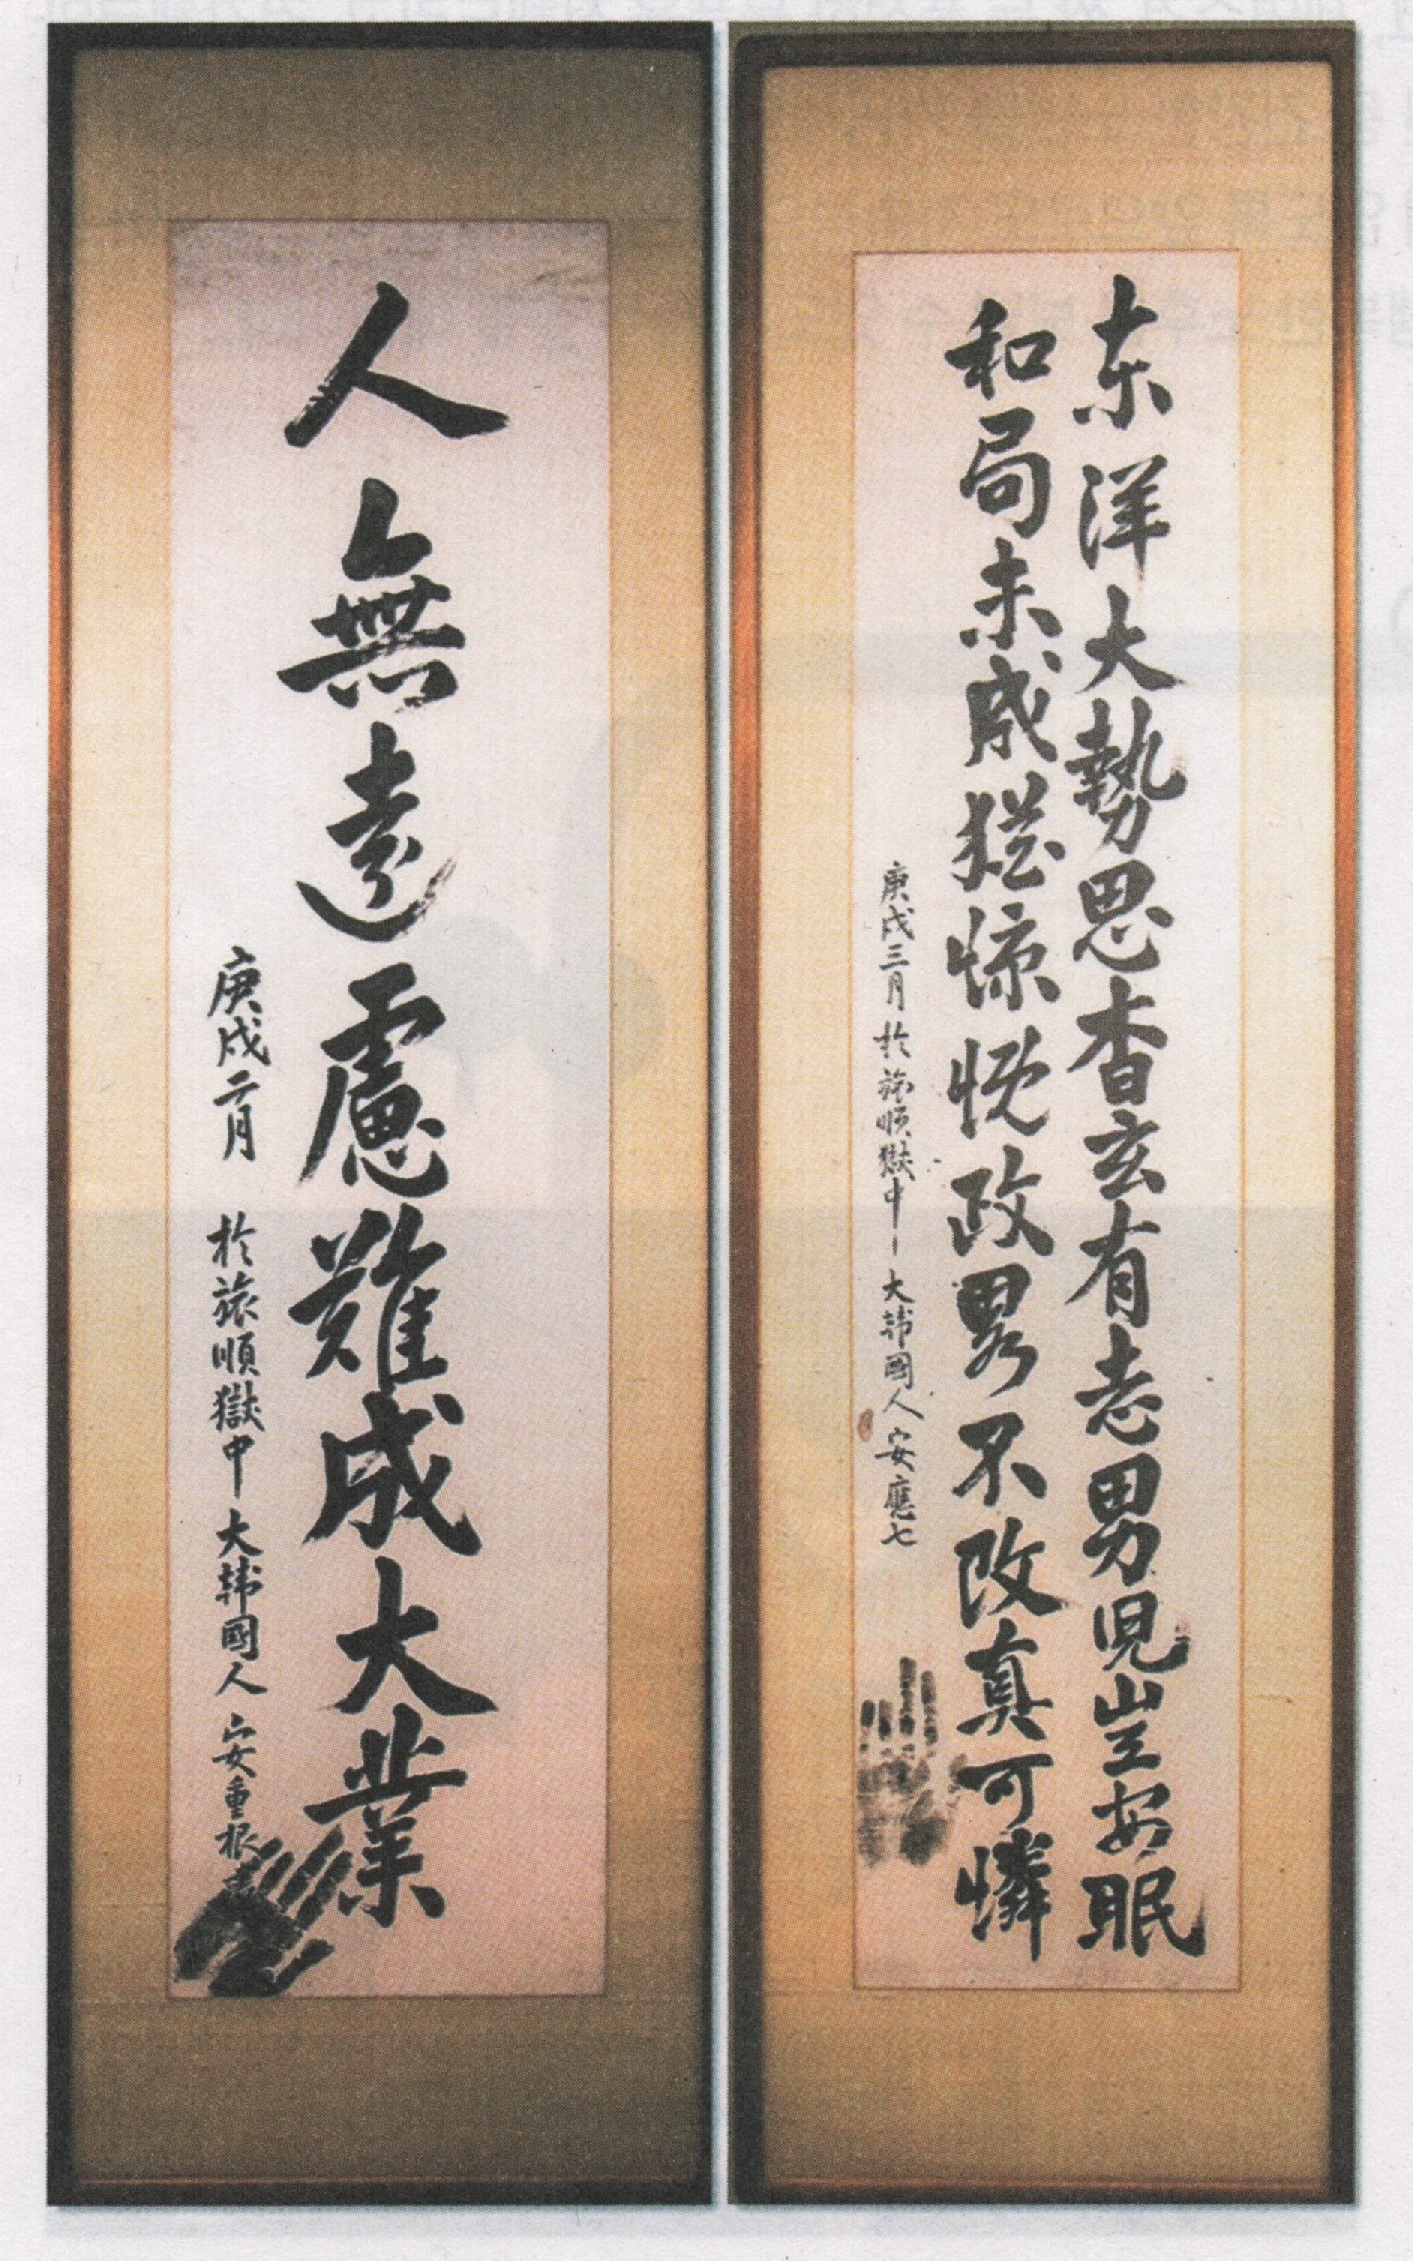 東洋大勢思杳玄有志男児豈安眠
和局未成猶慷慨政畧不改真可憐
庚戌三月 於旅順獄中 大韓國人 安應七
人無遠慮難成大業
庚戌二月 於旅順獄中 大韓國人 安重根書